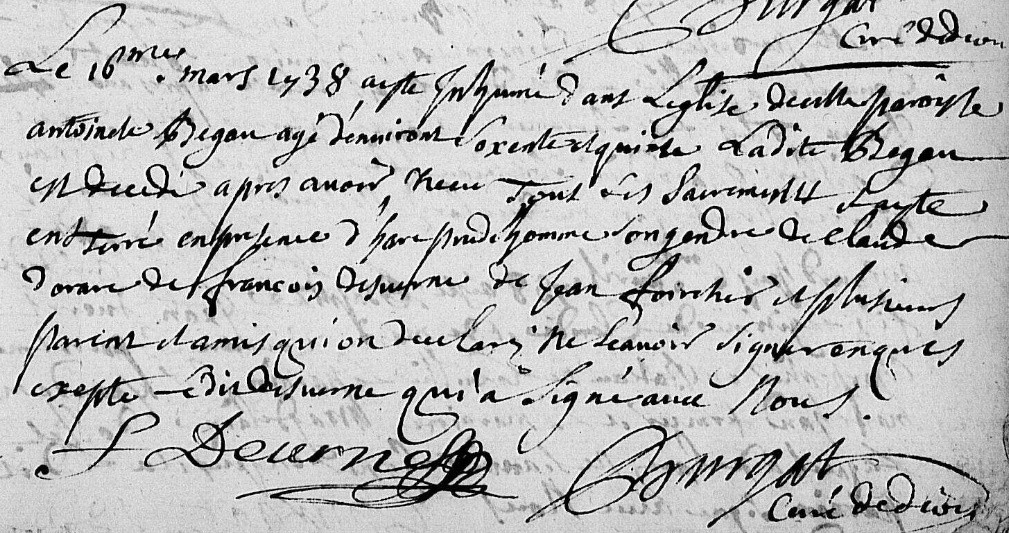 Burgat
Curé de dion
Le 16me mars 1738 aeste Inhumé dans Leglise de cette paroisse
antoinete Began agé denviront soxente et quinse Ladite Began
est decedé apres avoir Receu Tout Les Sacrements Elaeste
enterré en presence d' prudhomme son gendre de claude
de françois desverne de Jean et plusieurs
parent et amis qui on declaré Ne scavoir signer enquis
exepte Ledit desverne qui a signé avec Nous.
F Deverne
Burgat
Curé de dion